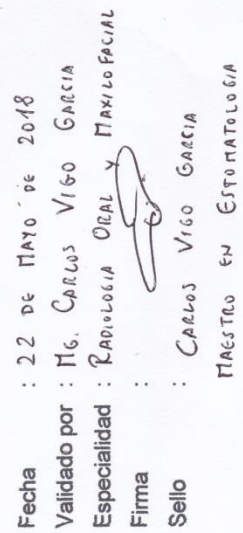 Fecha : 22 DE MAYO DE 2018
Validado por : MG. CARLOS VIGO GARCIA
Especialidad : RADIOLOGIA ORAL Y MAXILOFACIAL
Firma :
Sello : CARLOS VIGO GARCIA
MAESTRO EN ESTOMATOLOGIA